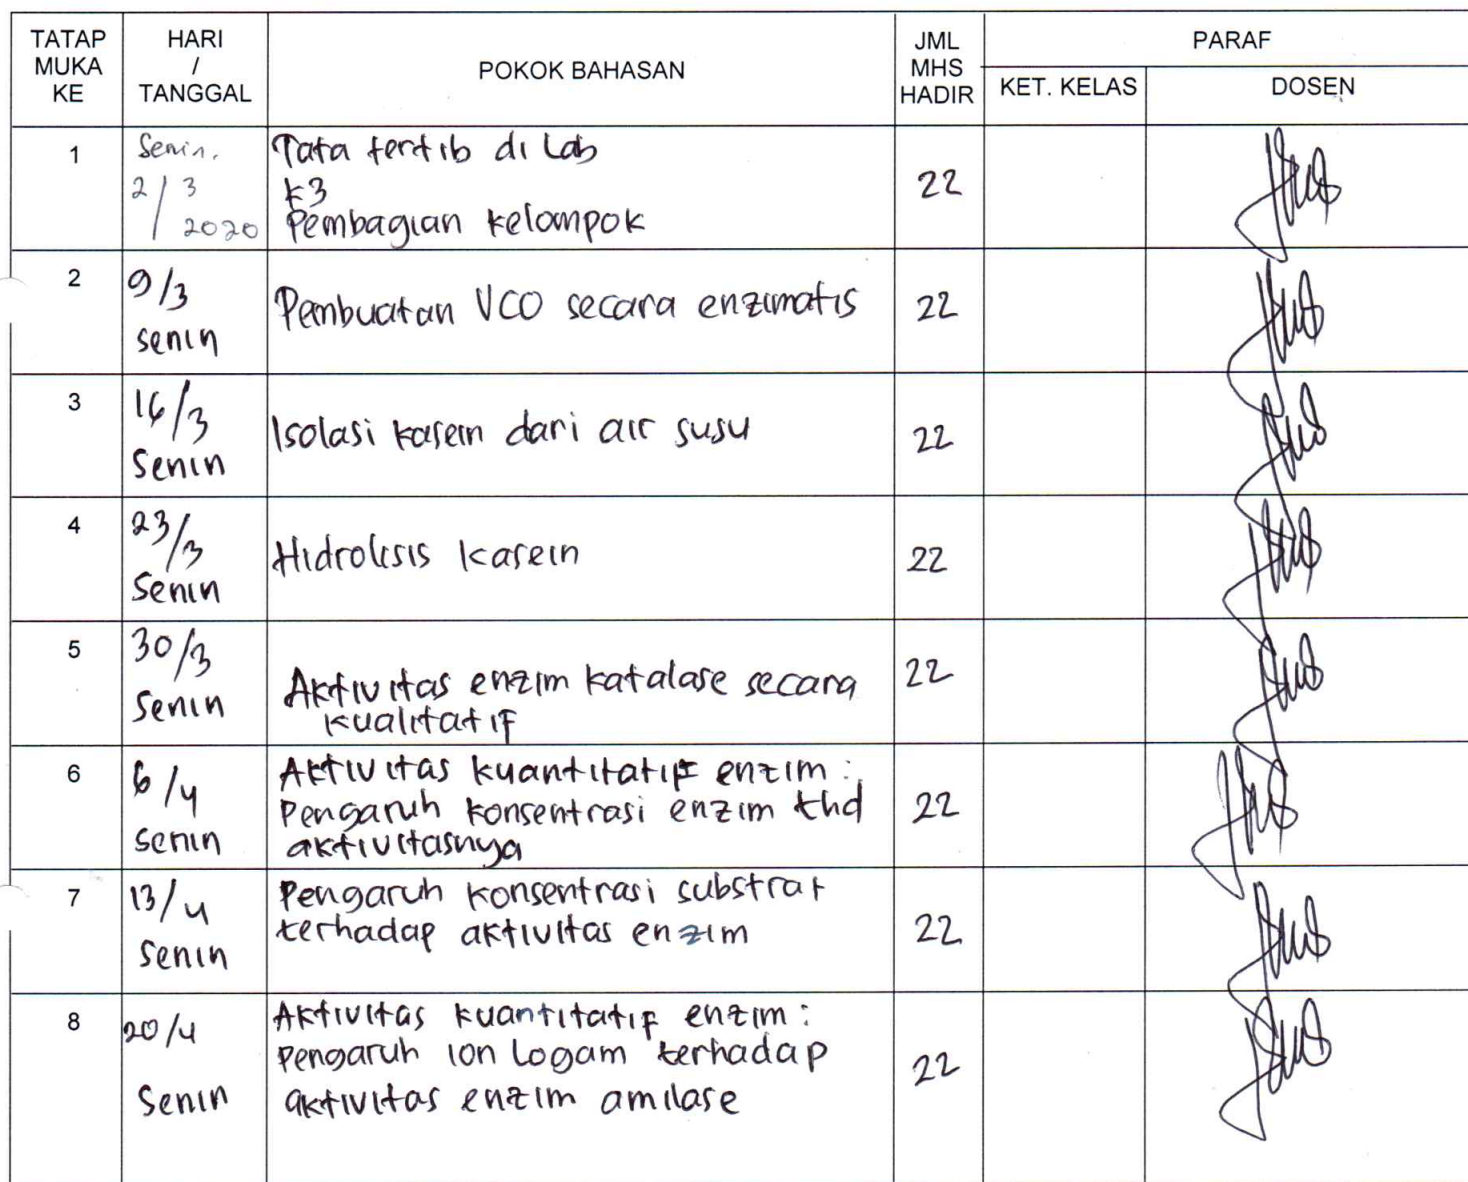 TATAP
MUKA
KE
HARI
/
TANGGAL
POKOK BAHASAN
JML
MHS
HADIR
PARAF
KET. KELAS
DOSEN
1
Senin,
2/3
2020
Tata tertib di Lab
K3
Pembagian kelompok
22
2
9/3
Senin
Pembuatan VCO secara enzimatis
22
3
16/3
Senin
Isolasi kasein dari air susu
22
4
23/3
Senin
Hidrolisis kasein
22
5
30/3
Senin
Aktivitas enzim katalase secara
kualitatif
22
6
6/4
Senin
Aktivitas kuantitatif enzim :
Pengaruh konsentrasi enzim thd
aktivitasnya
22
7
13/4
Senin
Pengaruh konsentrasi substrat
terhadap aktivitas enzim
22
8
20/4
Senin
Aktivitas kuantitatif enzim :
Pengaruh ion Logam terhadap
aktivitas enzim amilase
22